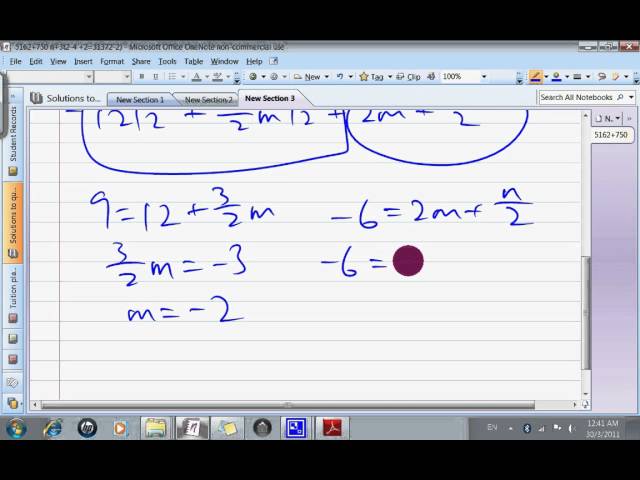 5162+750 n+3t2-4 +2=31372-2) - Microsoft Office OneNote non-commercial use
File Edit View Insert Format Share Tools Table Window Help
B I U New Tag Clip 100%
Solutions to... New Section 1 New Section 2 New Section 3 Search All Notebooks
Student Records
Solutions to qu
Tuition pla
N..
5162+750
+ 3/2 m + 2m + n/2
9 = 12 + 3/2 m
-6 = 2m + n/2
3/2 m = -3
-6 =
m = -2
EN 12:41 AM
30/3/2011